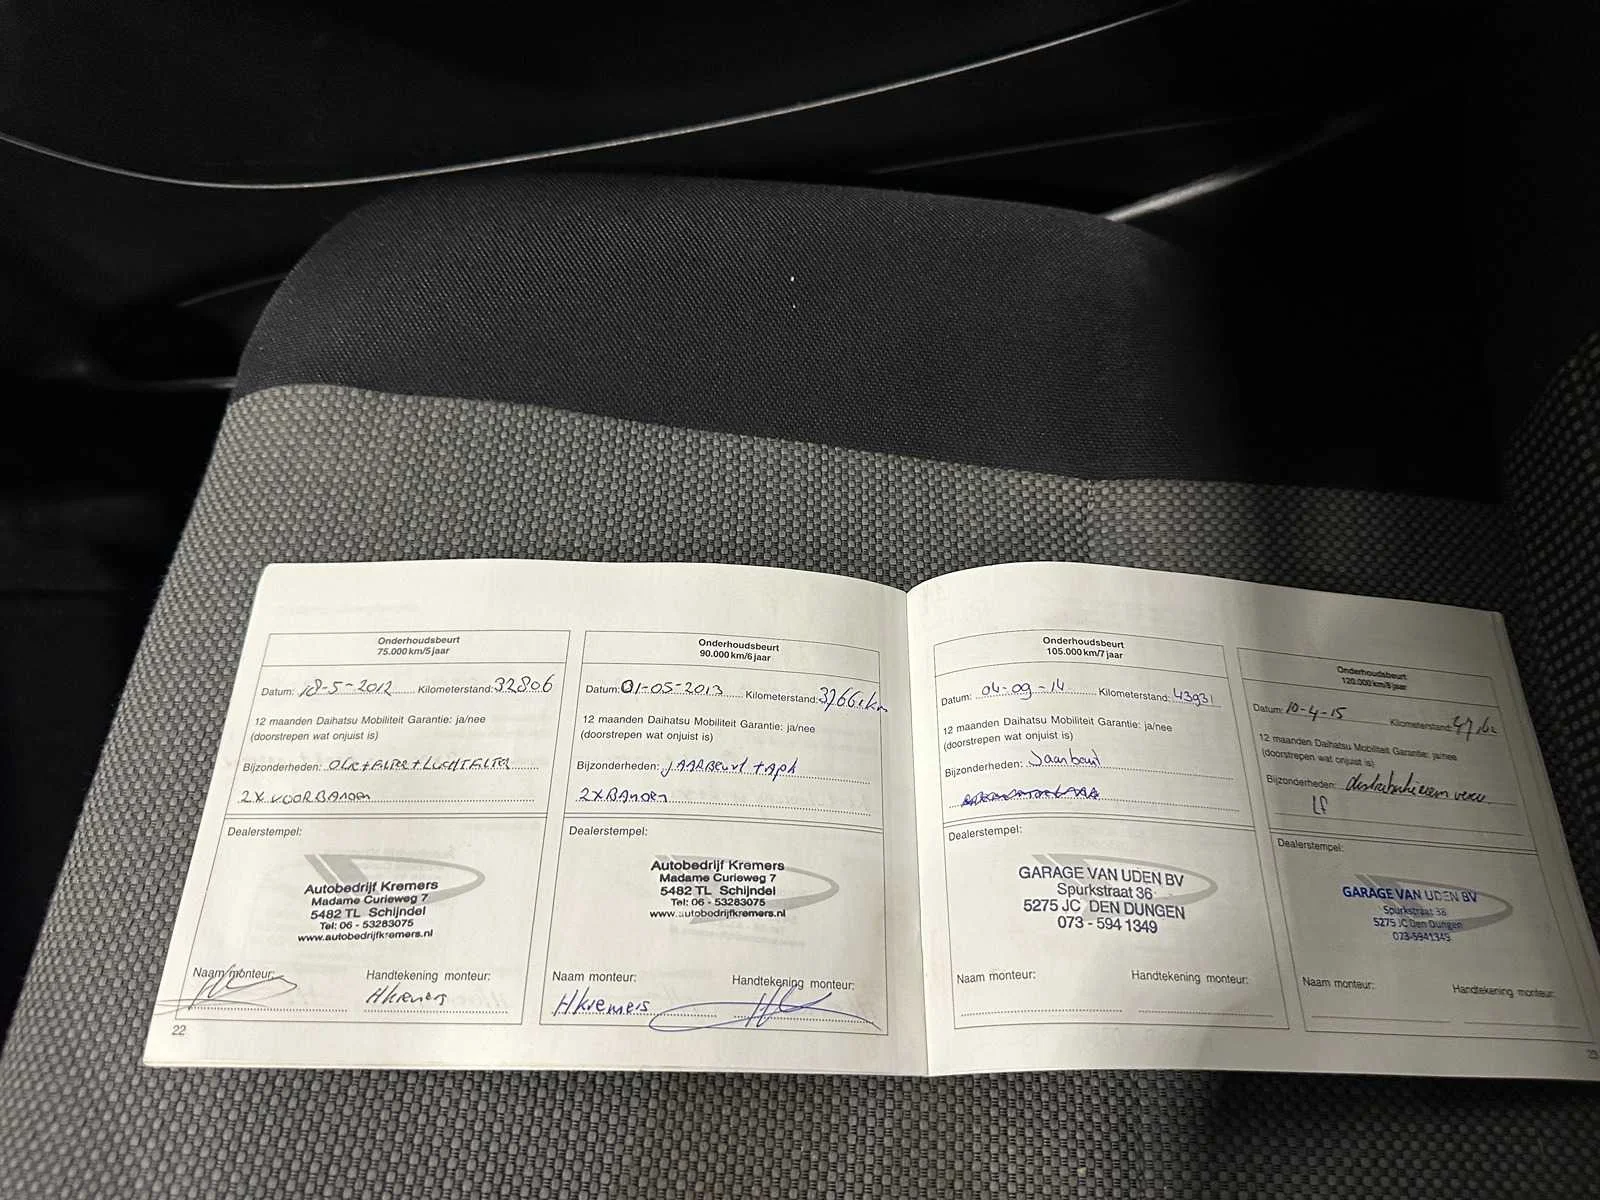 Onderhoudsbeurt
75.000 km/5 jaar
Datum: 18-5-2012 Kilometerstand: 32806
12 maanden Daihatsu Mobiliteit Garantie: ja/nee
(doorstrepen wat onjuist is)
Bijzonderheden: OLIE + FILTER + LUCHTFILTER
2X VOORBANDEN
Dealerstempel:
Autobedrijf Kremers
Madame Curieweg 7
5482 TL Schijndel
Tel: 06 - 53283075
www.autobedrijfkremers.nl
Naam monteur: Handtekening monteur:
HKremers
22
Onderhoudsbeurt
90.000 km/6 jaar
Datum: 01-05-2013 Kilometerstand: 37661 km
12 maanden Daihatsu Mobiliteit Garantie: ja/nee
(doorstrepen wat onjuist is)
Bijzonderheden: JAARBeurt + apk
2XBANDEN
Dealerstempel:
Autobedrijf Kremers
Madame Curieweg 7
5482 TL Schijndel
Tel: 06 - 53283075
www.autobedrijfkremers.nl
Naam monteur: Handtekening monteur:
HKremers
Onderhoudsbeurt
105.000 km/7 jaar
Datum: 04-09-14 Kilometerstand: 43931
12 maanden Daihatsu Mobiliteit Garantie: ja/nee
(doorstrepen wat onjuist is)
Bijzonderheden:
Dealerstempel:
GARAGE VAN UDEN BV
Spurkstraat 36
5275 JC DEN DUNGEN
073 - 594 1349
Naam monteur: Handtekening monteur:
Onderhoudsbeurt
120.000 km/8 jaar
Datum: 10-4-15 Kilometerstand:
12 maanden Daihatsu Mobiliteit Garantie: ja/nee
(doorstrepen wat onjuist is)
Bijzonderheden: distributieriem
Dealerstempel:
GARAGE VAN UDEN BV
Spurkstraat 36
5275 JC Den Dungen
073-5941349
Naam monteur: Handtekening monteur:
23